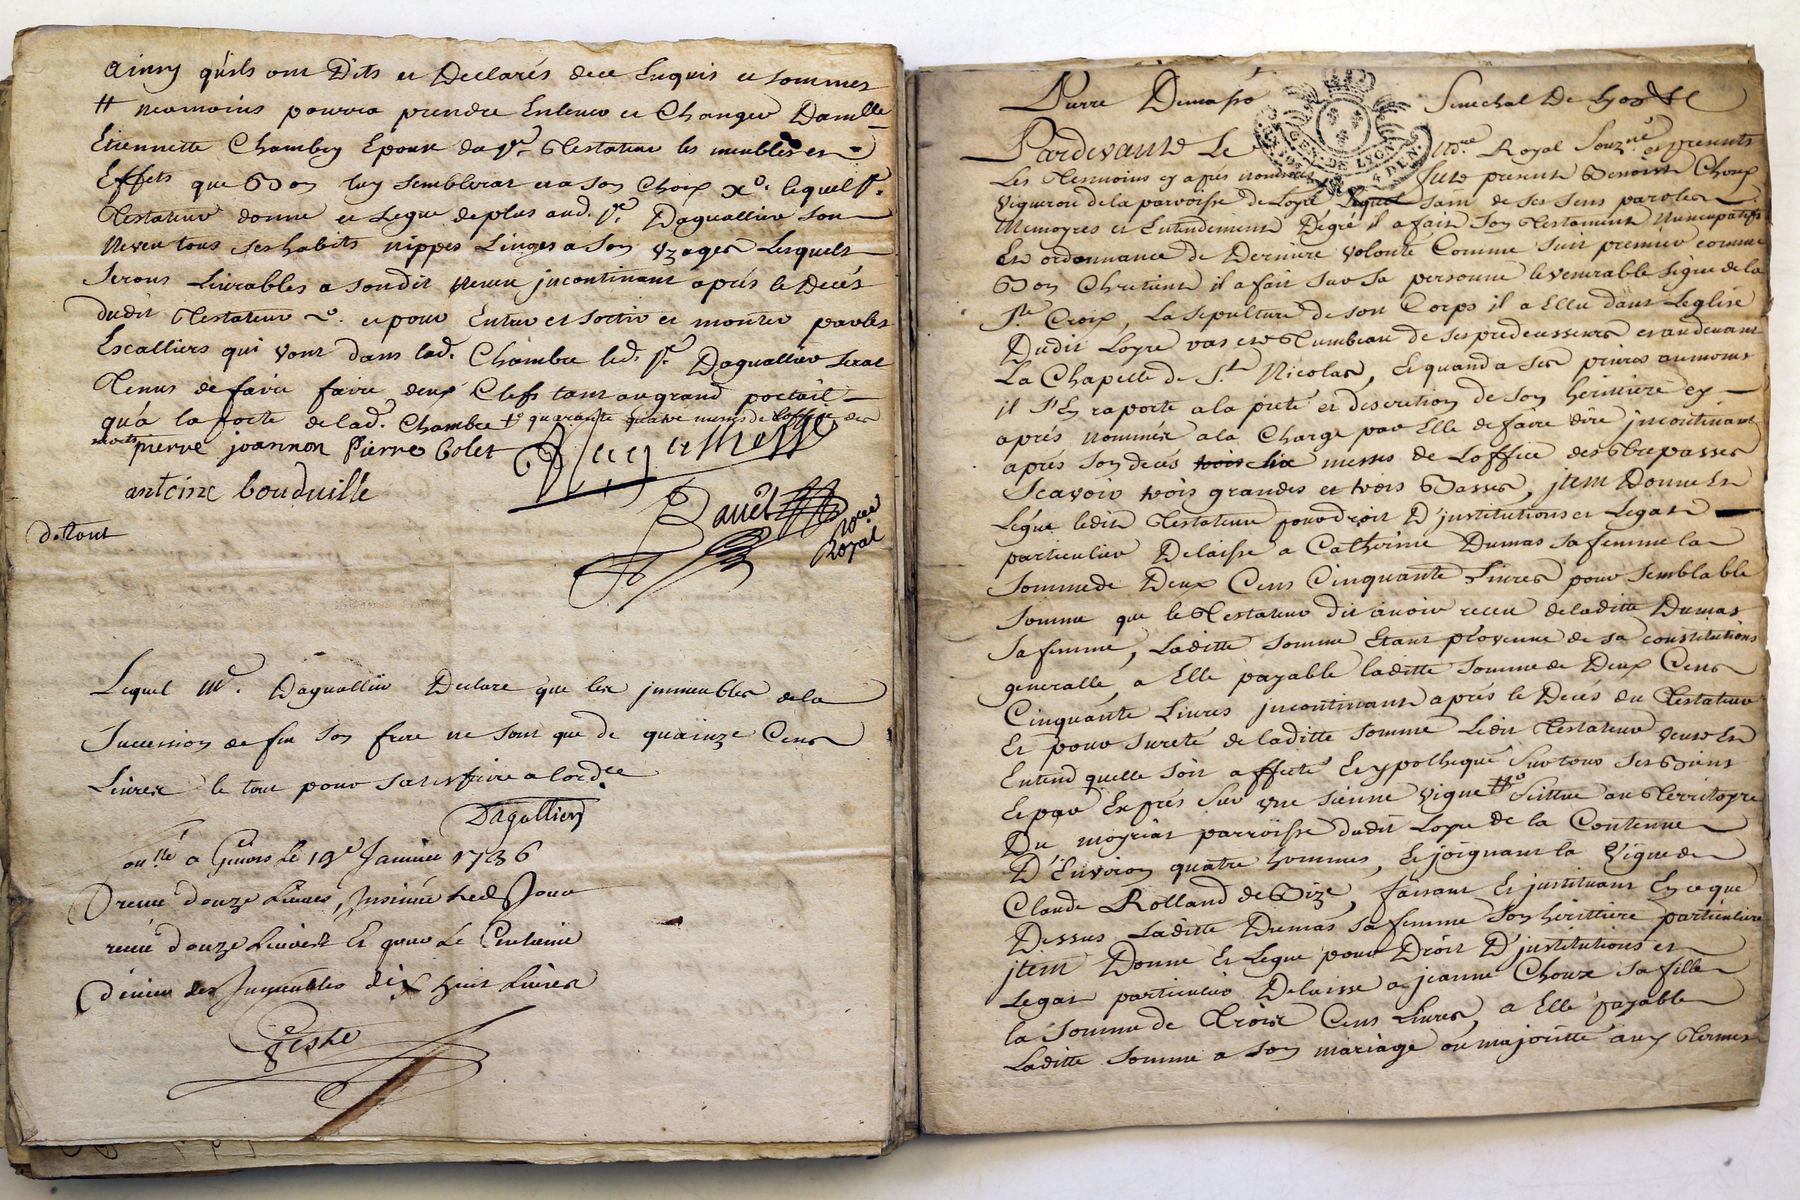 Ainsy quils ont Dits et Declarés dece Enquis et sommes
# neamoins pourra prendre Enlever et Changer Dam.lle
Etiennette Chambry Epouse du S.r Testateur les meubles et
Effets que Bon luy semblerat et a son Choix x.o lequel S.r
Testateur donne et Legue de plus aud. S.r Daguallier son
Neveu tous ses habits nippes Linges a son Uzages Lesquels
Serons Livrables a sondit Neveu jncontinant aprés le Decés
dudit Testateur et pour Entrer et sortir et monter par les
Escalliers qui vont dans lad. Chambre led. S.r Daguallier serat
Tenus de faire faire deux Clefs tant au grand portail
qu'a la porte de lad. Chambre t.o quarante quatre messes de loffice des
morts
pierre joannon Pierre bolet
antoine bouduille
Royal
d. tout
Lequel M.r Daguallier Declare que les jmmeubles de la
Succession de feu son frere ne sont que de quainze Cens
Livres le tout pour satisfaire a lord.ce
Dagallier
a Givors le 19e Janvier 1736
receu douze Livres, Insinué led Jour
receu douze Livres Et pour Le Centieme
Denier des Immeubles dix huit Livres
Pierre Dumas
GEN. DE LYON
Senechal De Lyon
Pardevant Le No.re Royal Souz.né et presents
Les Tesmoins cy apres nommés fut present Benoist Choux
Vigneron de la parroisse de Loyre Lequel sain de ses sens parolles
Memoyres et Entendement Degré il a fait son Testament Nuncupatif
Et ordonnance de Derniere Volonté Comme suit premier comme
Bon Chretient il a fait sur sa personne le venerable signe de la
S.te Croix, La sepulture de son Corps il a Elleu dans Leglise
Dudit Loyre vas et Tumbeau de ses predecesseurs et au devant
La Chapelle de S.t Nicolas, Et quand a ses prieres aumones
il s'En raporte a la pieté et discretion de son heritiere cy
aprés nommée a la Charge par Elle de faire dire jncontinant
apres son decés six messes de Loffice des Trepassés
Scavoir trois grandes et trois Basses, jtem Donne Et
Légue ledit Testateur pour droit D'justitutions et Legat
particulier Delaisse a Catherine Dumas sa femme la
Somme de Deux Cens Cinquante Livres pour semblable
Somme que le Testateur dit avoir receu de laditte Dumas
Sa femme, Laditte Somme Etant provenue de sa constitutions
generalle, a Elle payable laditte Somme de Deux Cens
Cinquante Livres jncontinant aprés le Decés du Testateur
Et pour sureté de laditte somme Ledit Testateur veut Et
Entend quelle soit affecté Et ypothequé sur tous ses Biens
Et par Exprés sur une sienne Vigne Scittue au Territoyre
Du moyriat parroisse dudit Loyre de la Contenue
D'Environ quatre hommes, Et joignant la Vigne de
Claude Rolland de Bize, faisant Et justituant En ce que
Dessus Laditte Dumas sa femme son hérittiere particuliere
jtem Donne Et Legue pour Droit D'justitutions et
Legat particulier Delaisse a jeanne Choux sa fille
la Somme de Trois Cens Livres, a Elle payable
Laditte Somme a son mariage ou majoritté aux Termes